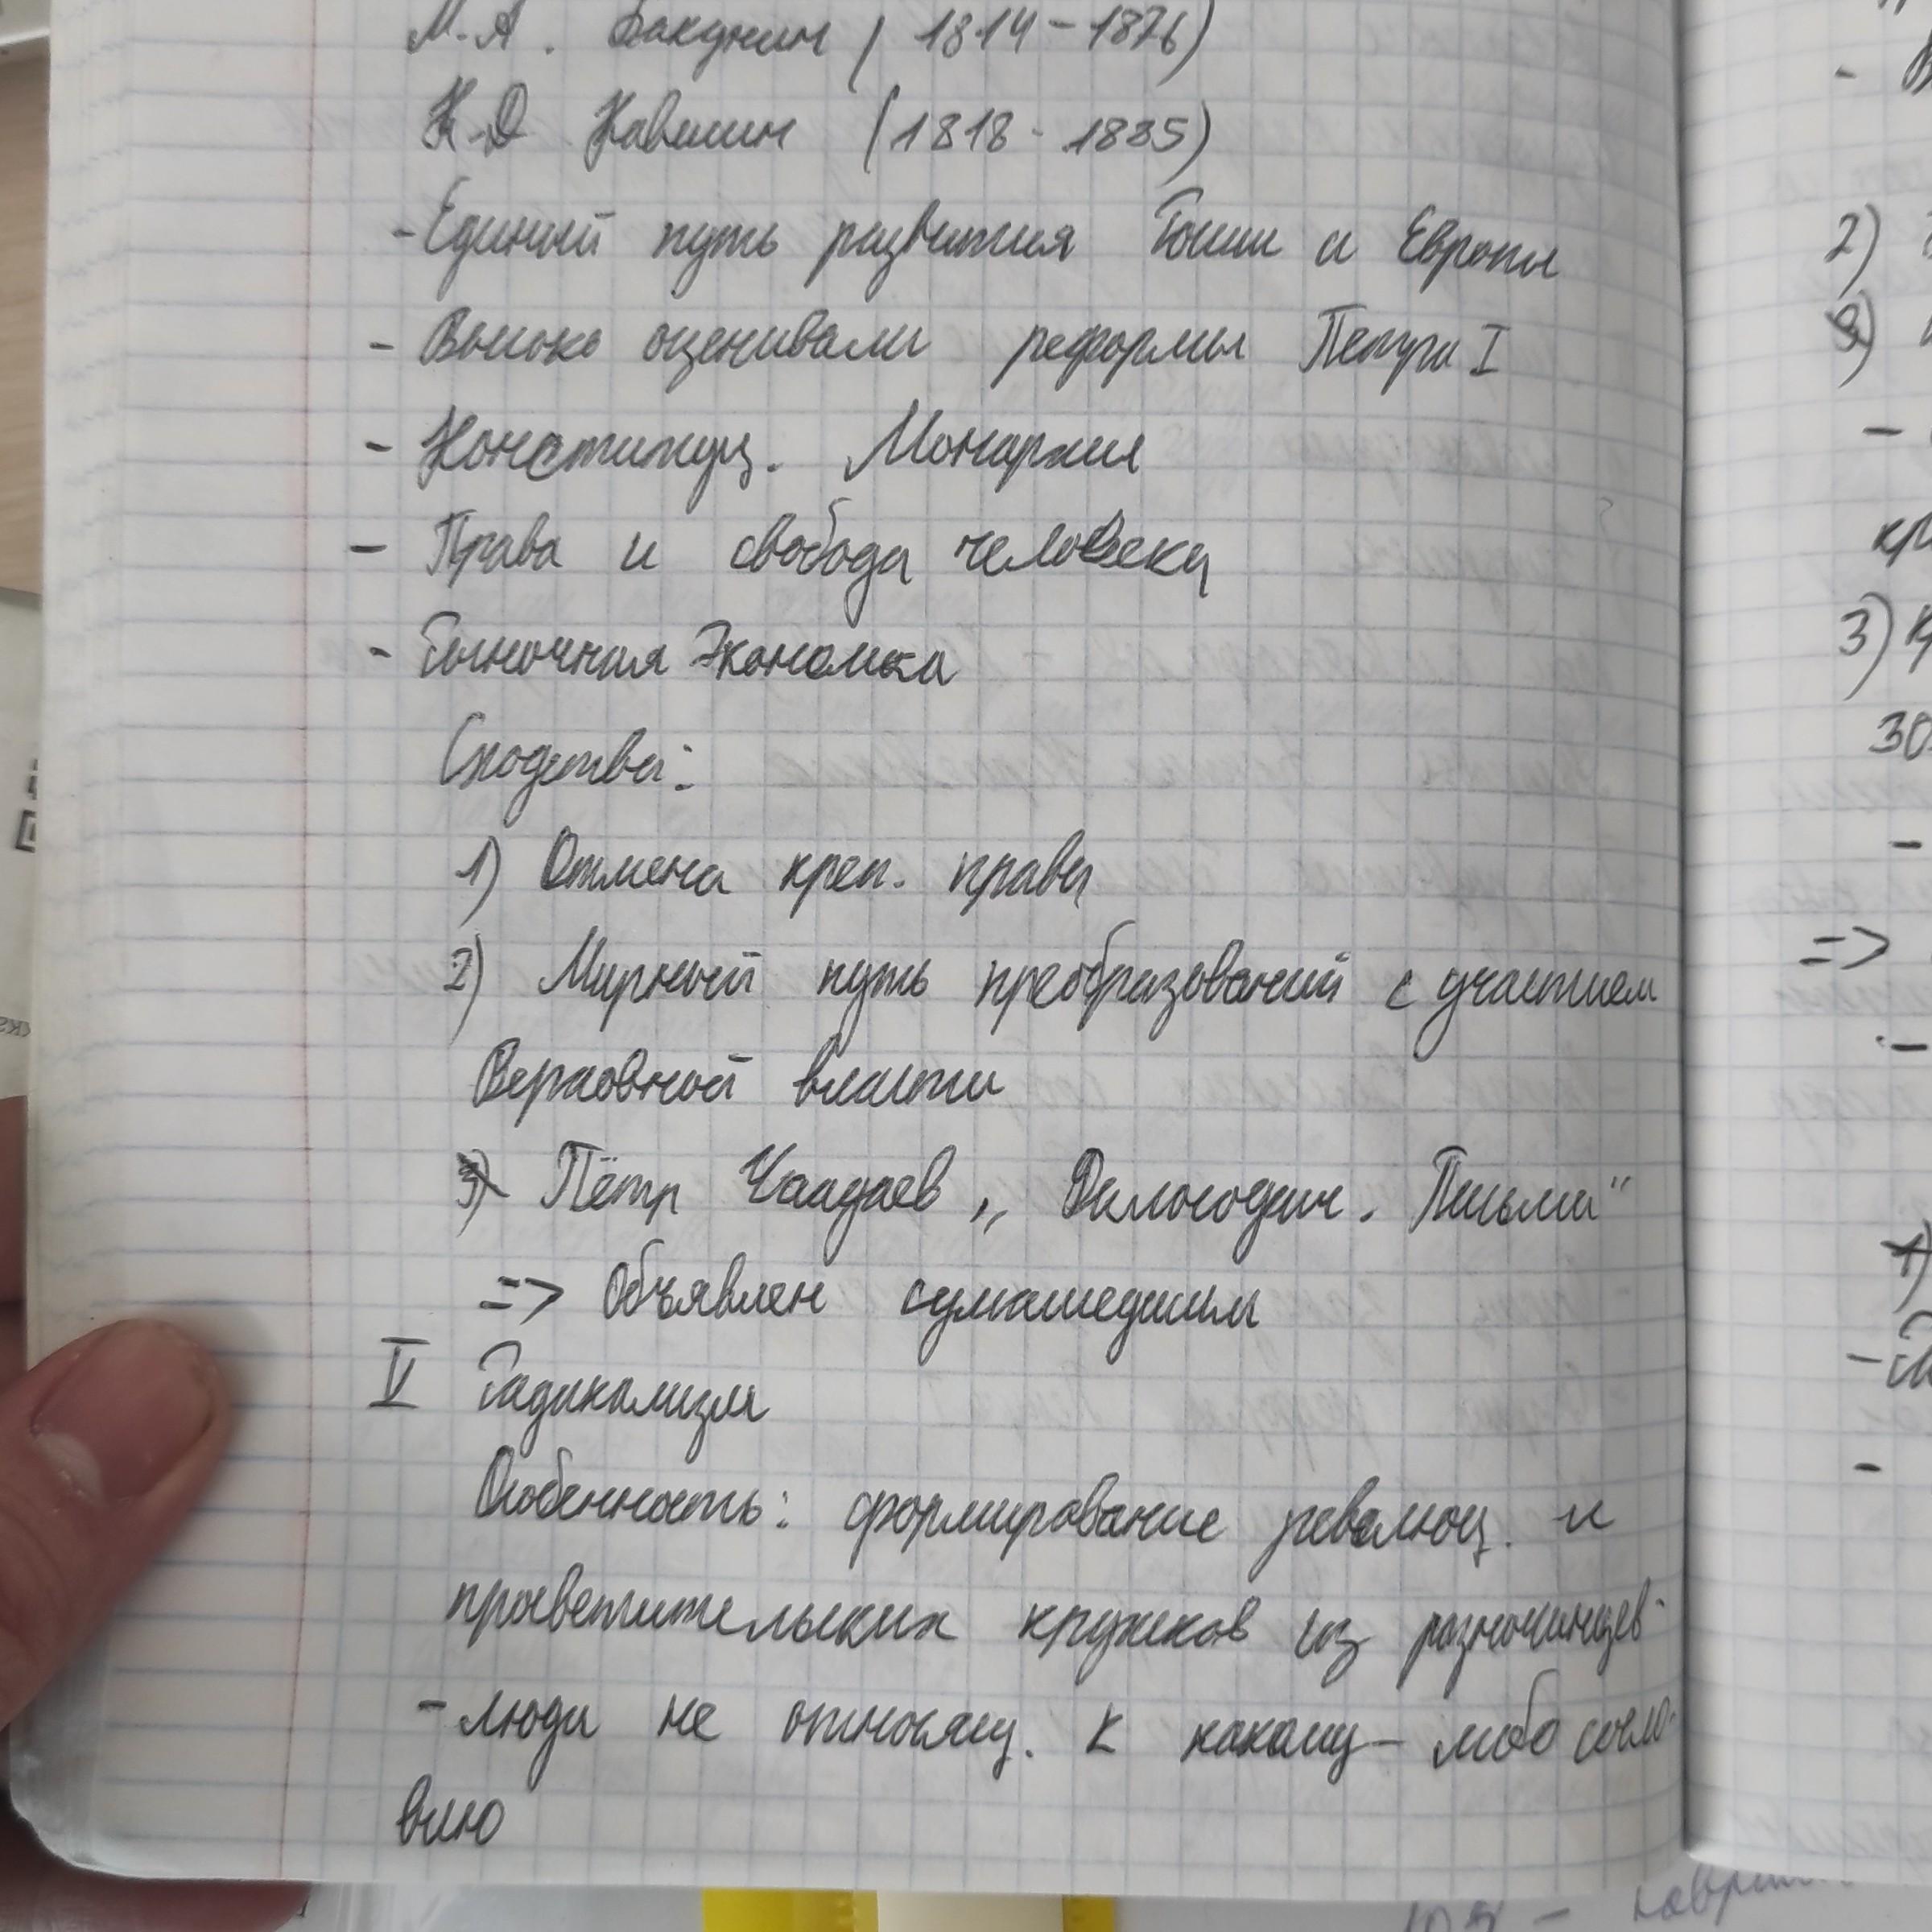 М.А. Бакунин (1814-1876)
К.Д Кавелин (1818-1885)
-Единый путь развития России и Европы
- Высоко оценивали реформы Петра I
- Конституц. Монархия
- Права и свобода человека
- Рыночная Экономика
Сходства:
1) Отмена креп. права
2) Мирный путь преобразований с участием
Верховной власти
3) Пётр Чаадаев „ Философич. Письма"
=> Объявлен сумашедшим
V Радикализм
Особенность: формирование революц. и
просветительских кружков из разночинцев-
- люди не относящ. к какому-либо сосло-
вию